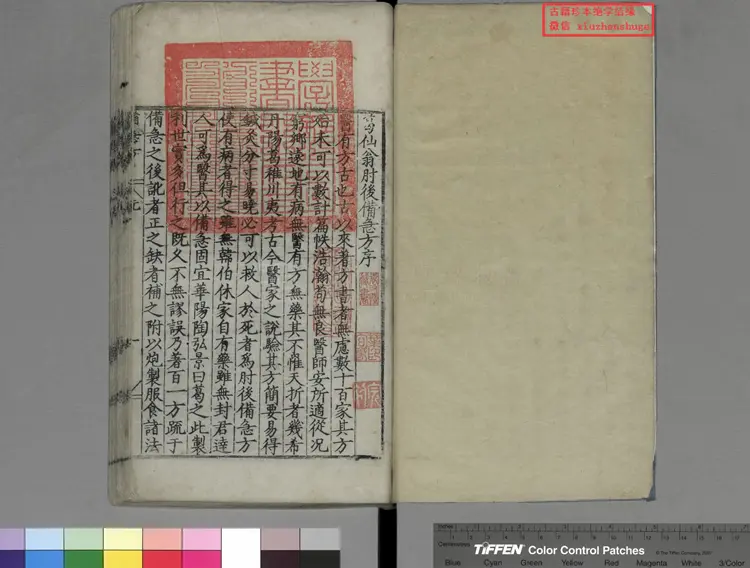 葛仙翁肘後備急方序
醫有方古也古以來著方書者無慮數十百家其方
殆未可以數計篇帙浩瀚苟無良醫師安所適從况
窮鄉遠地有病無醫有方無藥其不罹夭折者幾希
丹陽葛稚川夷考古今醫家之說驗其方簡要易得
鍼灸分寸易曉必可以救人於死者為肘後備急方
使有病者得之雖無韓伯休家自有藥雖無封君達
人可為醫其以備急固宜華陽陶弘景曰葛之此製
利世實多但行之既久不無謬誤乃著百一方疏于
備急之後訛者正之缺者補之附以炮製服食諸法
古籍珍本绝学结缘
微信 xiuzhenzhuge
TiFFEN Color Control Patches
© The Tiffen Company, 2007
Inches
Centimetres
Blue Cyan Green Yellow Red Magenta White 3/Color